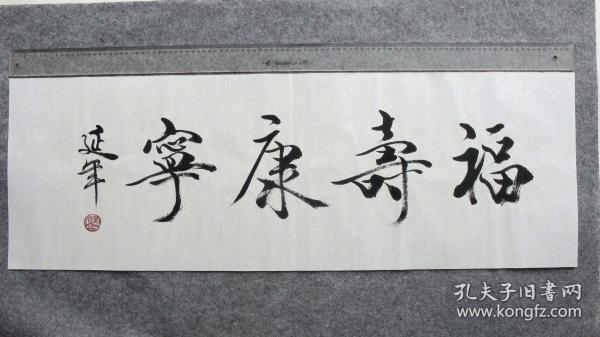 福壽康寧
延年
孔夫子旧书网
www.kongfz.com